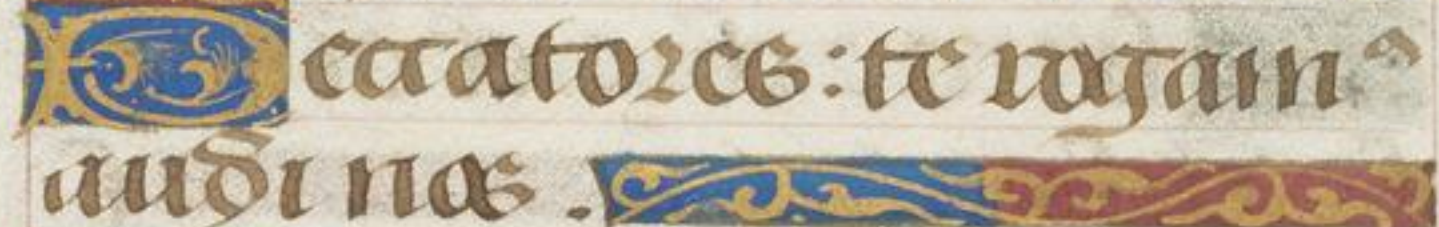 Peccatores: te rogamꝰ
audi nos.